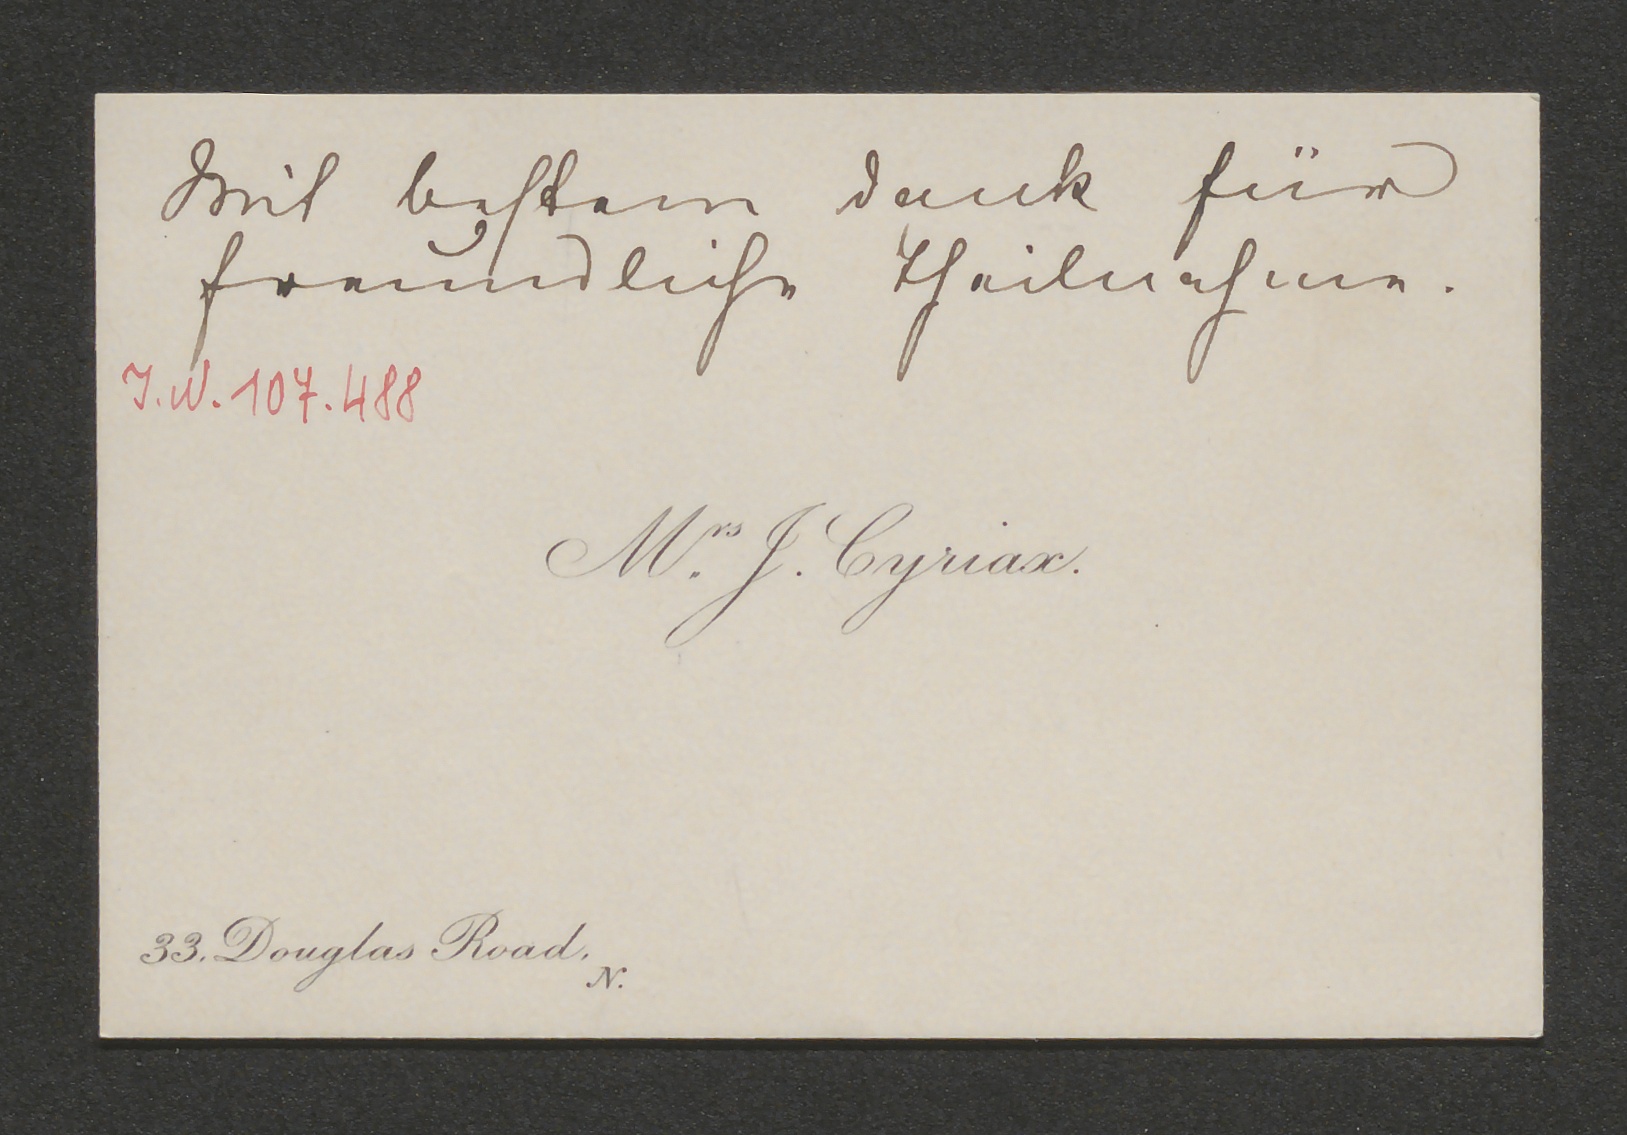 Mit bestem dank für
freundliche Theilnahme.
I.N. 107.488
Mrs. J. Cyriax.
33. Douglas Road.
N.